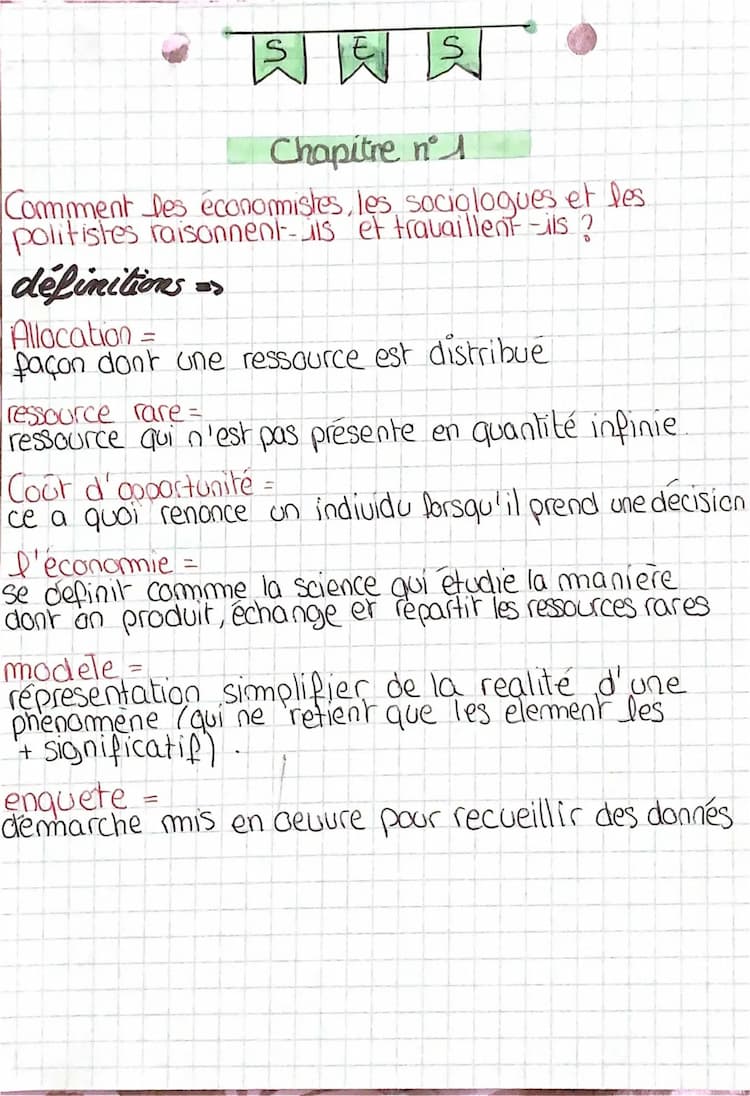 S E S
Chapitre n°1
Comment les économistes, les sociologues et les
politistes raisonnent-ils et travaillent-ils ?
définitions =>
Allocation =
façon dont une ressource est distribué
ressource rare =
ressource qui n'est pas présente en quantité infinie.
Coût d'opportunité =
ce a quoi renonce un individu lorsqu'il prend une décision
l'économie =
se définit comme la science qui étudie la manière
dont on produit, échange et répartir les ressources rares
modele =
répresentation simplifier de la realité d'une
phénomène (qui ne retient que les element les
+ significatif).
enquete =
démarche mis en oeuvre pour recueillir des donnés